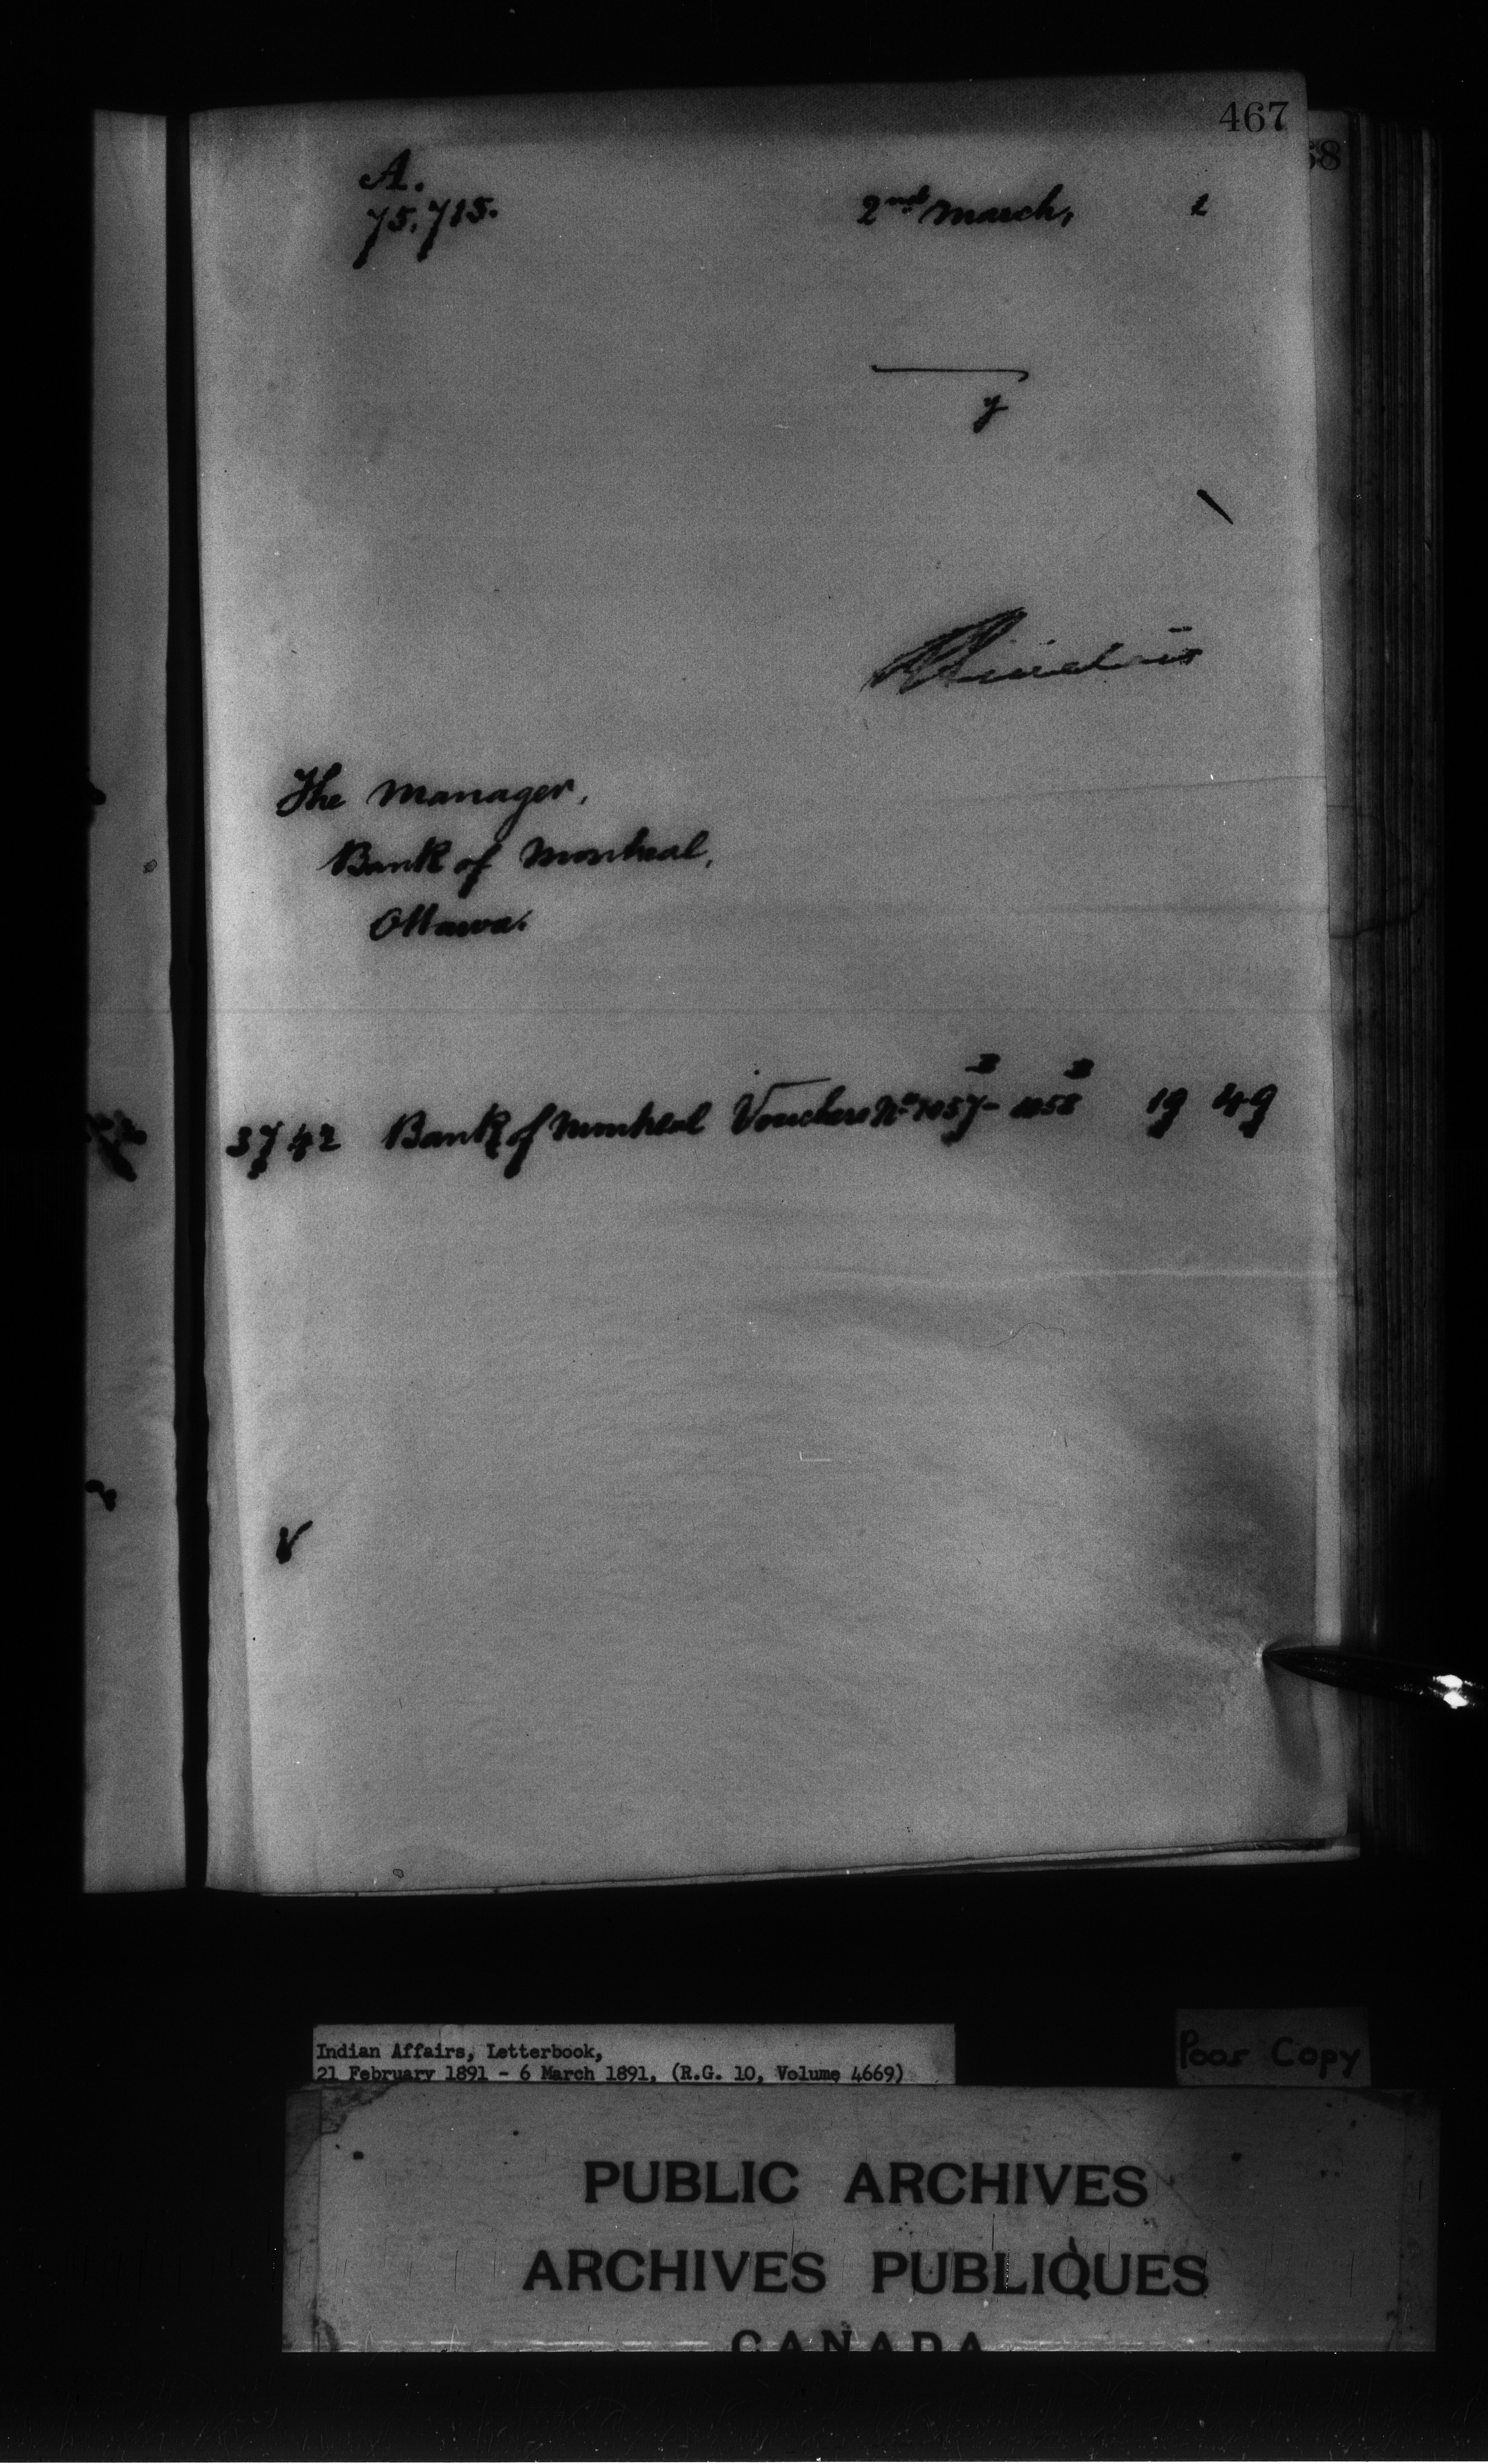 467
68
A.
75,715.
2nd March, 1
y
The Manager,
Bank of Montreal,
Ottawa.
B B
3742 Bank of Montreal Vouchers No 1057 - 1058 19 49
Indian Affairs, Letterbook,
21 February 1891 - 6 March 1891, (R.G. 10, Volume 4669)
Poor Copy
PUBLIC ARCHIVES
ARCHIVES PUBLIQUES
CANADA